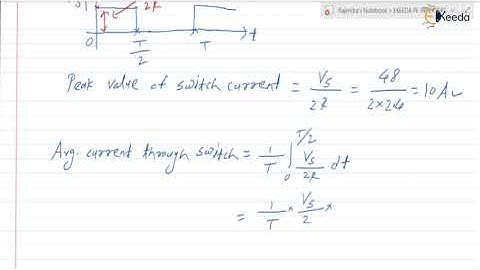 Rajendra's Notebook > EKEEDA
Ekeeda
2R
0 T/2 T t
Peak value of switch current = Vs/2R = 48/2×2.4 = 10 A
Avg. current through switch = 1/T ∫₀^T/2 Vs/2R dt
= 1/T × Vs/2 ×